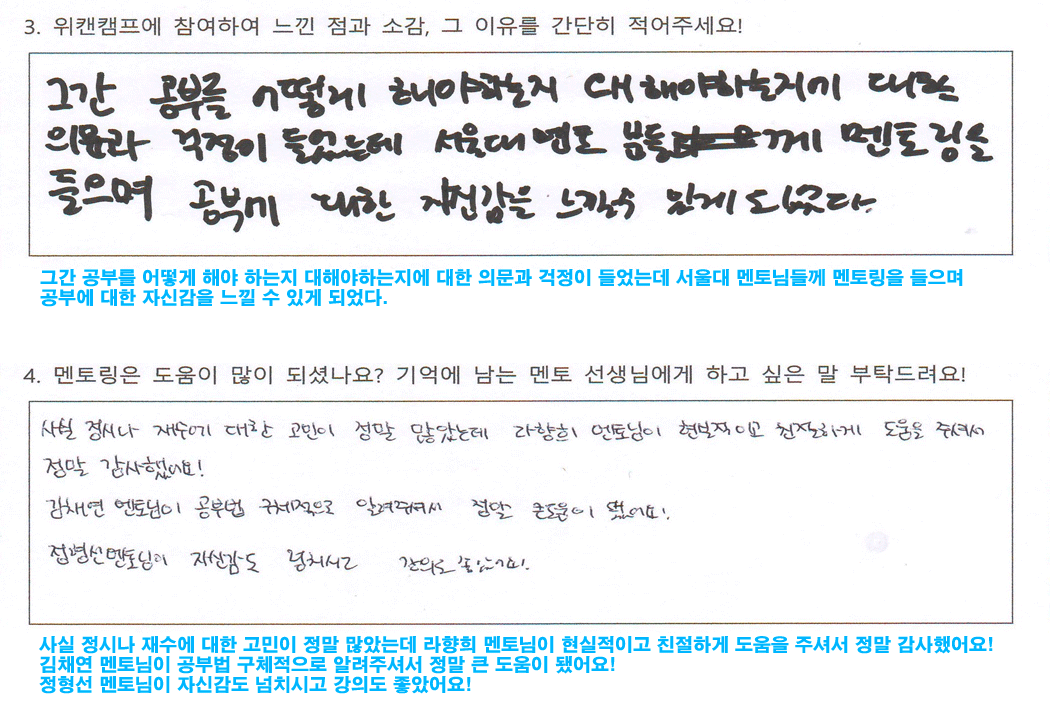 3. 위캔캠프에 참여하여 느낀 점과 소감, 그 이유를 간단히 적어주세요!
그간 공부를 어떻게 해야하는지 대해야하는지에 대한
의문과 걱정이 들었는데 서울대 멘토 분들께 멘토링을
들으며 공부에 대한 자신감을 느낄수 있게 되었다.
그간 공부를 어떻게 해야 하는지 대해야하는지에 대한 의문과 걱정이 들었는데 서울대 멘토님들께 멘토링을 들으며
공부에 대한 자신감을 느낄 수 있게 되었다.
4. 멘토링은 도움이 많이 되셨나요? 기억에 남는 멘토 선생님에게 하고 싶은 말 부탁드려요!
사실 정시나 재수에 대한 고민이 정말 많았는데 라향희 멘토님이 현실적이고 친절하게 도움을 주셔서
정말 감사했어요!
김채연 멘토님이 공부법 구체적으로 알려주셔서 정말 큰도움이 됐어요!
정형선멘토님이 자신감도 넘치시고 강의도 좋았어요!
사실 정시나 재수에 대한 고민이 정말 많았는데 라향희 멘토님이 현실적이고 친절하게 도움을 주셔서 정말 감사했어요!
김채연 멘토님이 공부법 구체적으로 알려주셔서 정말 큰 도움이 됐어요!
정형선 멘토님이 자신감도 넘치시고 강의도 좋았어요!